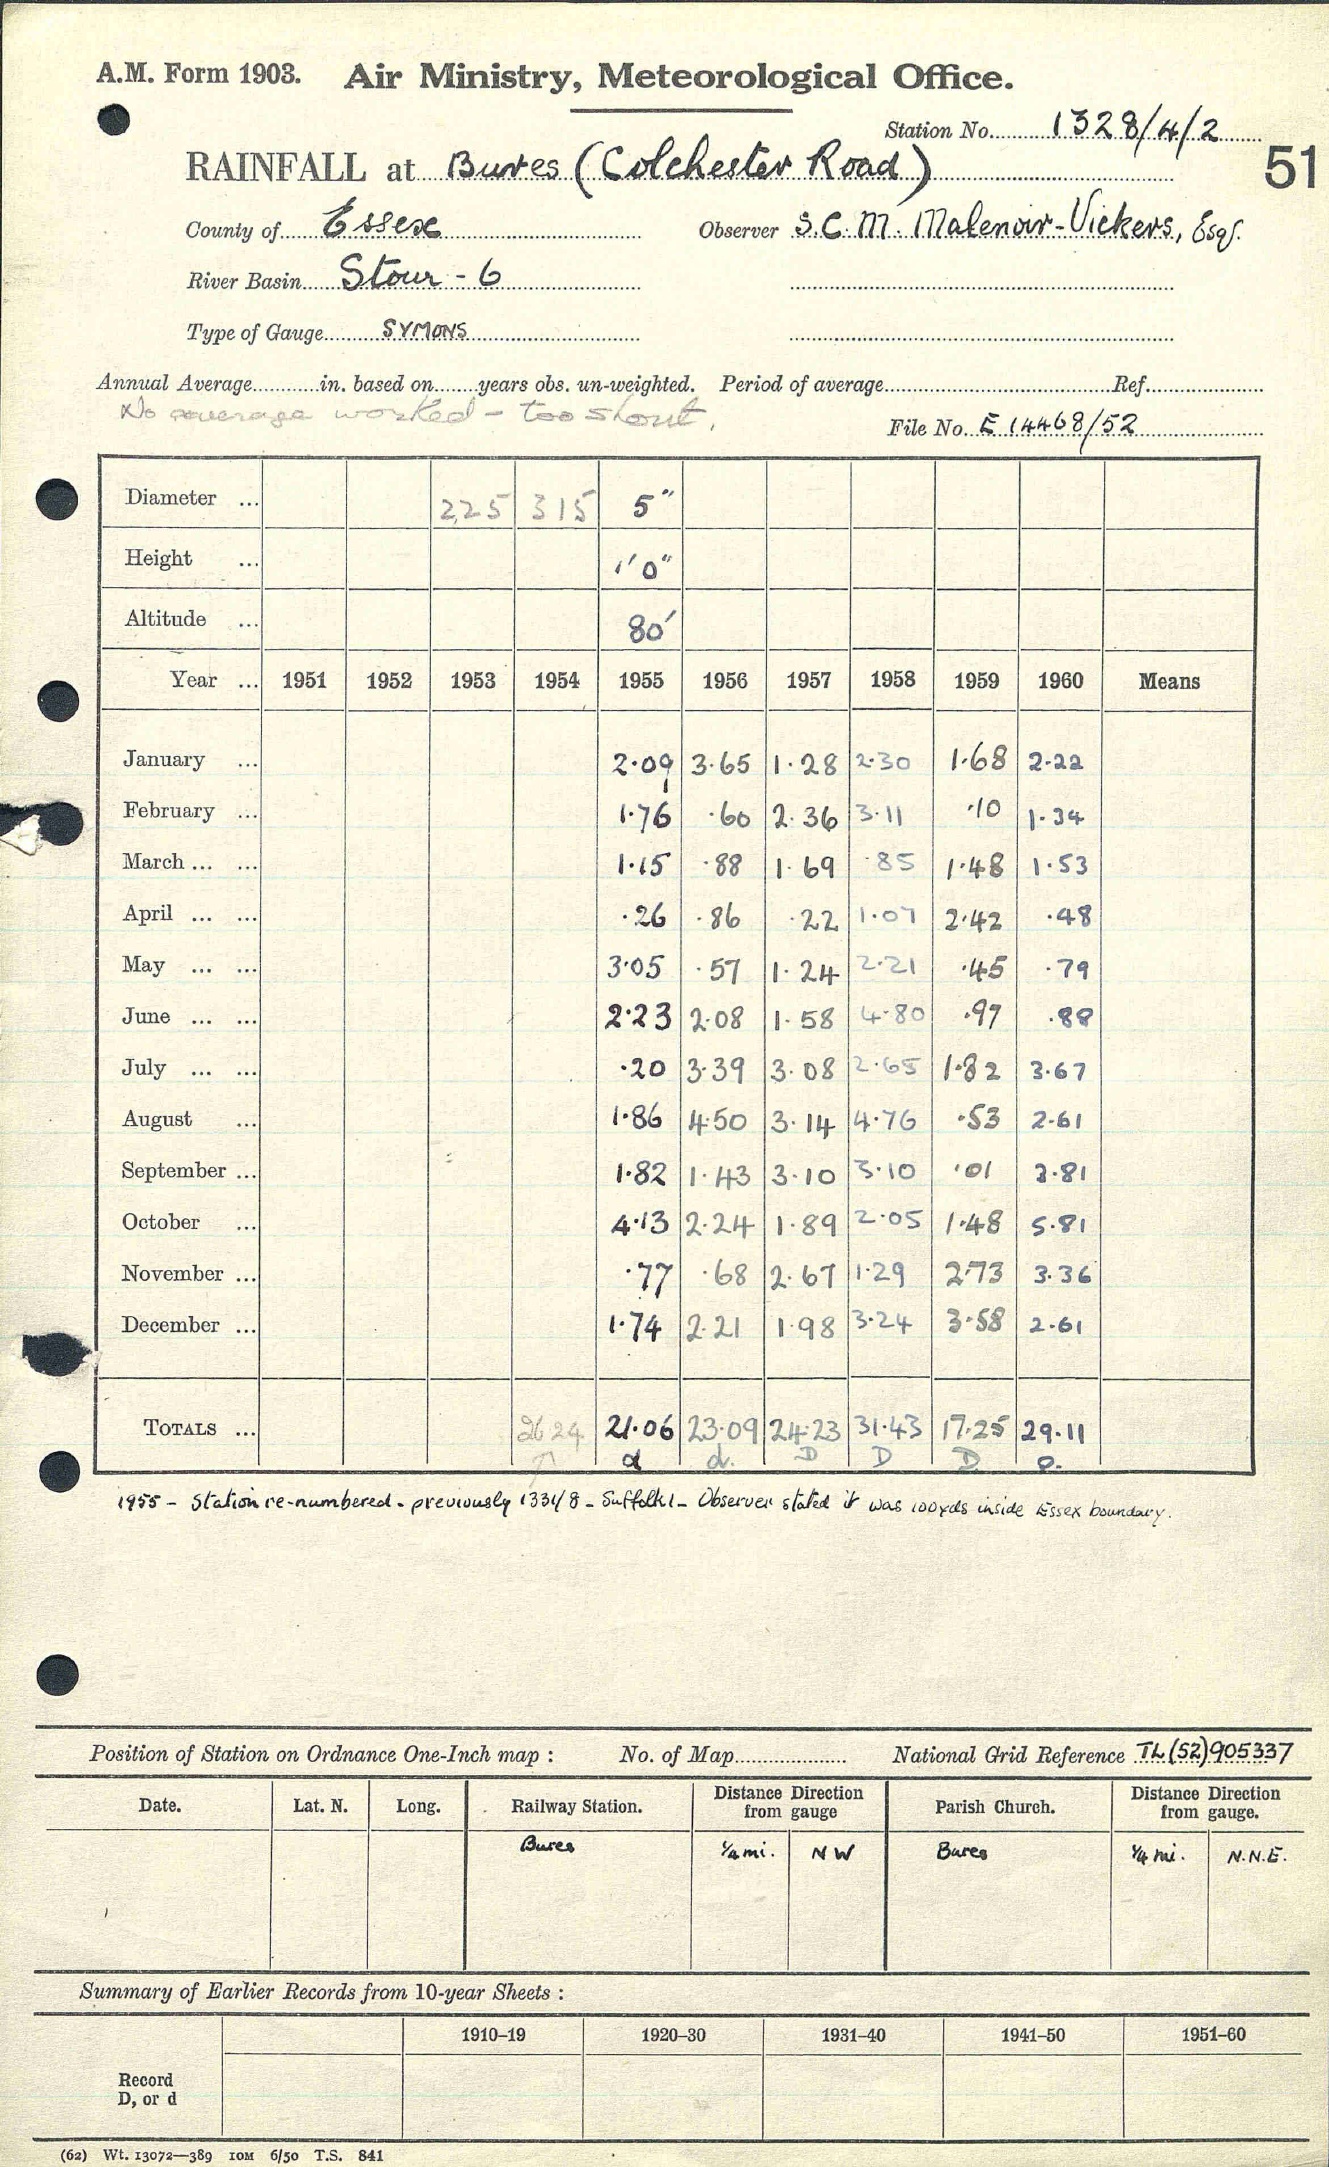 A.M. Form 1903. Air Ministry, Meteorological Office.
Station No. 1328/4/2
51
RAINFALL at Bures (Colchester Road)
County of Essex Observer S.C.M. Malenoir-Vickers, Esq.
River Basin Stour - 6
Type of Gauge SYMONS
Annual Average in. based on years obs. un-weighted. Period of average Ref.
No average worked - too short.
File No. E 14468/52
Diameter ... 225 315 5"
Height ... 1'0"
Altitude ... 80'
Year ... 1951 1952 1953 1954 1955 1956 1957 1958 1959 1960 Means
January ... 2.09 3.65 1.28 2.30 1.68 2.22
February ... 1.76 .60 2.36 3.11 .10 1.34
March ... ... 1.15 .88 1.69 .85 1.48 1.53
April ... ... .26 .86 .22 1.07 2.42 .48
May ... ... 3.05 .57 1.24 2.21 .45 .79
June ... ... 2.23 2.08 1.58 4.80 .97 .88
July ... ... .20 3.39 3.08 2.65 1.82 3.67
August ... 1.86 4.50 3.14 4.76 .53 2.61
September ... 1.82 1.43 3.10 3.10 .01 3.81
October ... 4.13 2.24 1.89 2.05 1.48 5.81
November ... .77 .68 2.67 1.29 2.73 3.36
December ... 1.74 2.21 1.98 3.24 3.58 2.61
TOTALS ... 26 24 21.06 23.09 24.23 31.43 17.25 29.11
d d. D D D
1955 - Station re-numbered - previously 1331/8 - Suffolk - Observer stated it was 100yds inside Essex boundary.
Position of Station on Ordnance One-Inch map : No. of Map National Grid Reference TL(52)905337
Date. Lat. N. Long. Railway Station. Distance Direction from gauge Parish Church. Distance Direction from gauge.
Bures 1/4 mi. NW Bures 1/4 mi. N.N.E.
Summary of Earlier Records from 10-year Sheets :
1910–19 1920–30 1931–40 1941–50 1951–60
Record
D, or d
(62) Wt. 13072—389 10M 6/50 T.S. 841